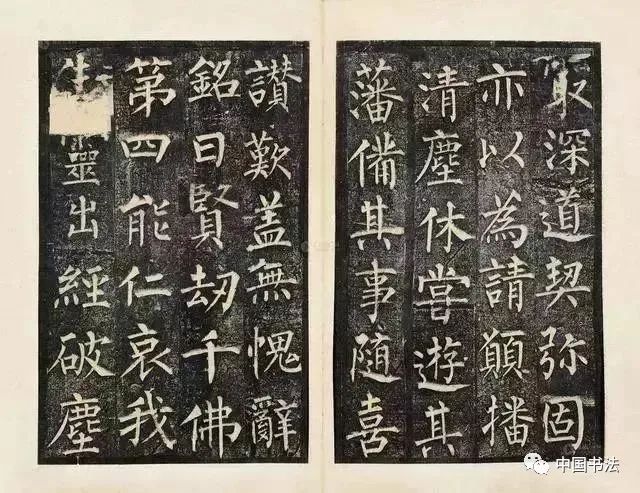 最深道契弥固
亦以為請願播
清塵休甞遊其
藩備其事隨喜
讃歎盖無愧辭
銘曰賢刼千佛
第四能仁哀我
生靈出經破塵
中国书法